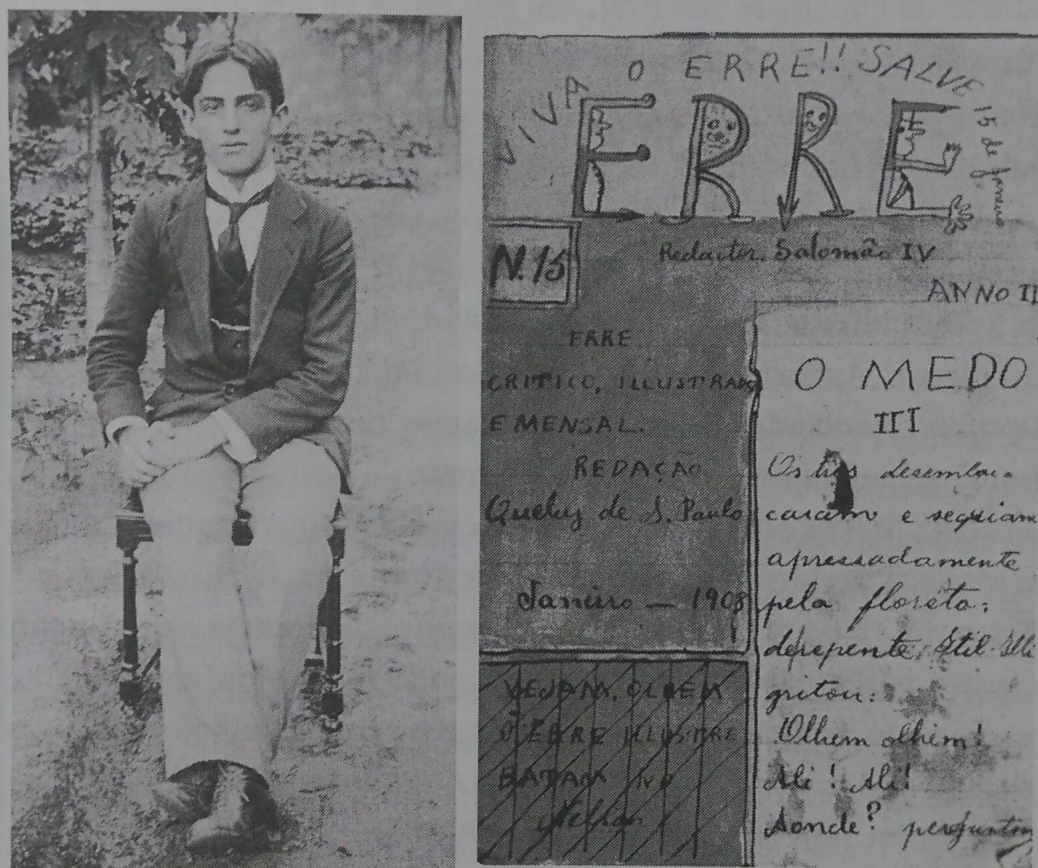 VIVA O ERRE!! SALVE 15 de Janeiro
ERRE
N. 15
Redactor. Salomão IV
ANNO II
ERRE
CRITICO, ILLUSTRADO
E MENSAL.
REDAÇÃO
Queluz de S. Paulo
Janeiro — 1908
VEJAM, OLHEM
O ERRE ILLUSTRE
BATAM
O MEDO
III
Os tres desemba-
caram e seguiam
apressadamente
pela floresta;
derepente
gritou:
Olhem olhem!
Ali! Ali!
Aonde? pergunton